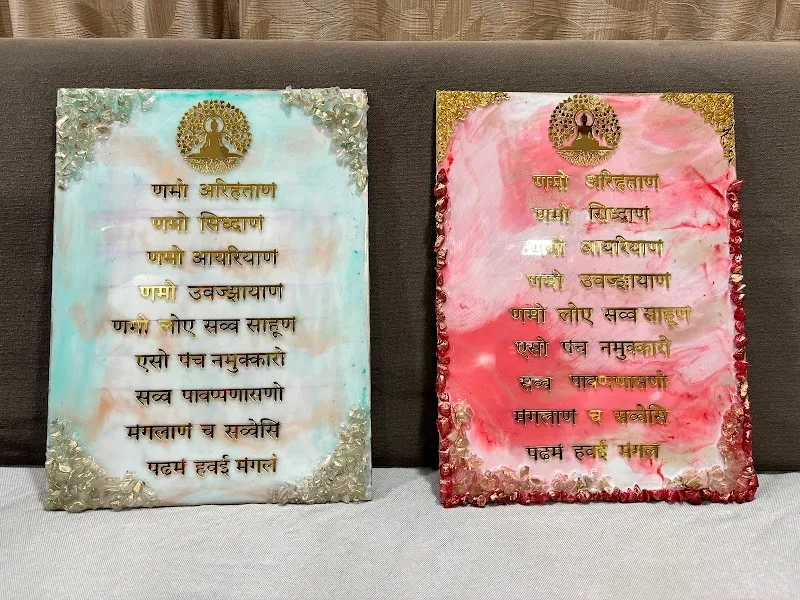 णमो अरिहंताणं
णमो सिध्दाणं
णमो आयरियाणं
णमो उवज्झायाणं
णमो लोए सव्व साहूणं
एसो पंच नमुक्कारो
सव्व पावप्पणासणो
मंगलाणं च सव्वेसि
पढमं हवई मंगलं
णमो अरिहंताणं
णमो सिध्दाणं
णमो आयरियाणं
णमो उवज्झायाणं
णमो लोए सव्व साहूणं
एसो पंच नमुक्कारो
सव्व पावप्पणासणो
मंगलाणं च सव्वेसि
पढमं हवई मंगलं